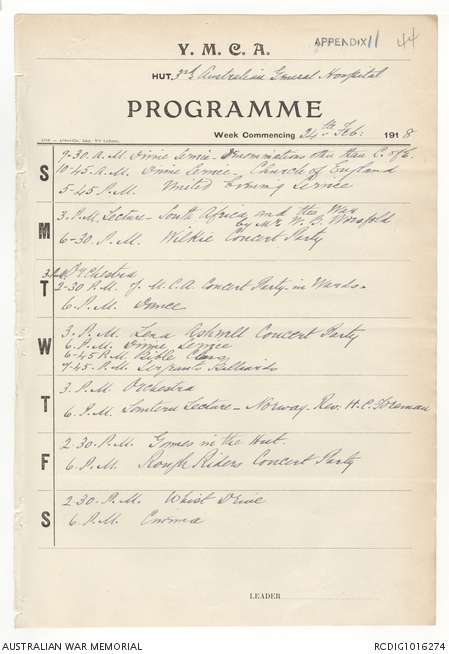 APPENDIX 11 44
Y. M. C. A.
HUT. 3rd Australian General Hospital
PROGRAMME
Week Commencing 24th Feb: 1918
S
9-30 A.M. Divine Service - Denominations other than C. of E.
10-45 A.M. Divine Service - Church of England
5-45 P.M. United Evening Service
M
3. P.M. Lecture - South Africa and the War
by Mr W. B. Worsfold
6-30. P.M. Wilkie Concert Party
T
3. P.M. Orchestra
2-30 P.M. Y.M.C.A. Concert Party in Wards.
6. P.M.
W
3. P.M. Lena Ashwell Concert Party
6. P.M. Divine Service
6-45 P.M. Bible Class
7-45. P.M. Sergeants Billiards
T
3. P.M. Orchestra
6. P.M. Lantern Lecture - Norway. Rev. H. C. Foreman
F
2-30. P.M. Games in the Hut.
6. P.M. Rough Riders Concert Party
S
2-30. P.M. Whist Drive
6. P.M. Cinema
LEADER
AUSTRALIAN WAR MEMORIAL RCDIG1016274